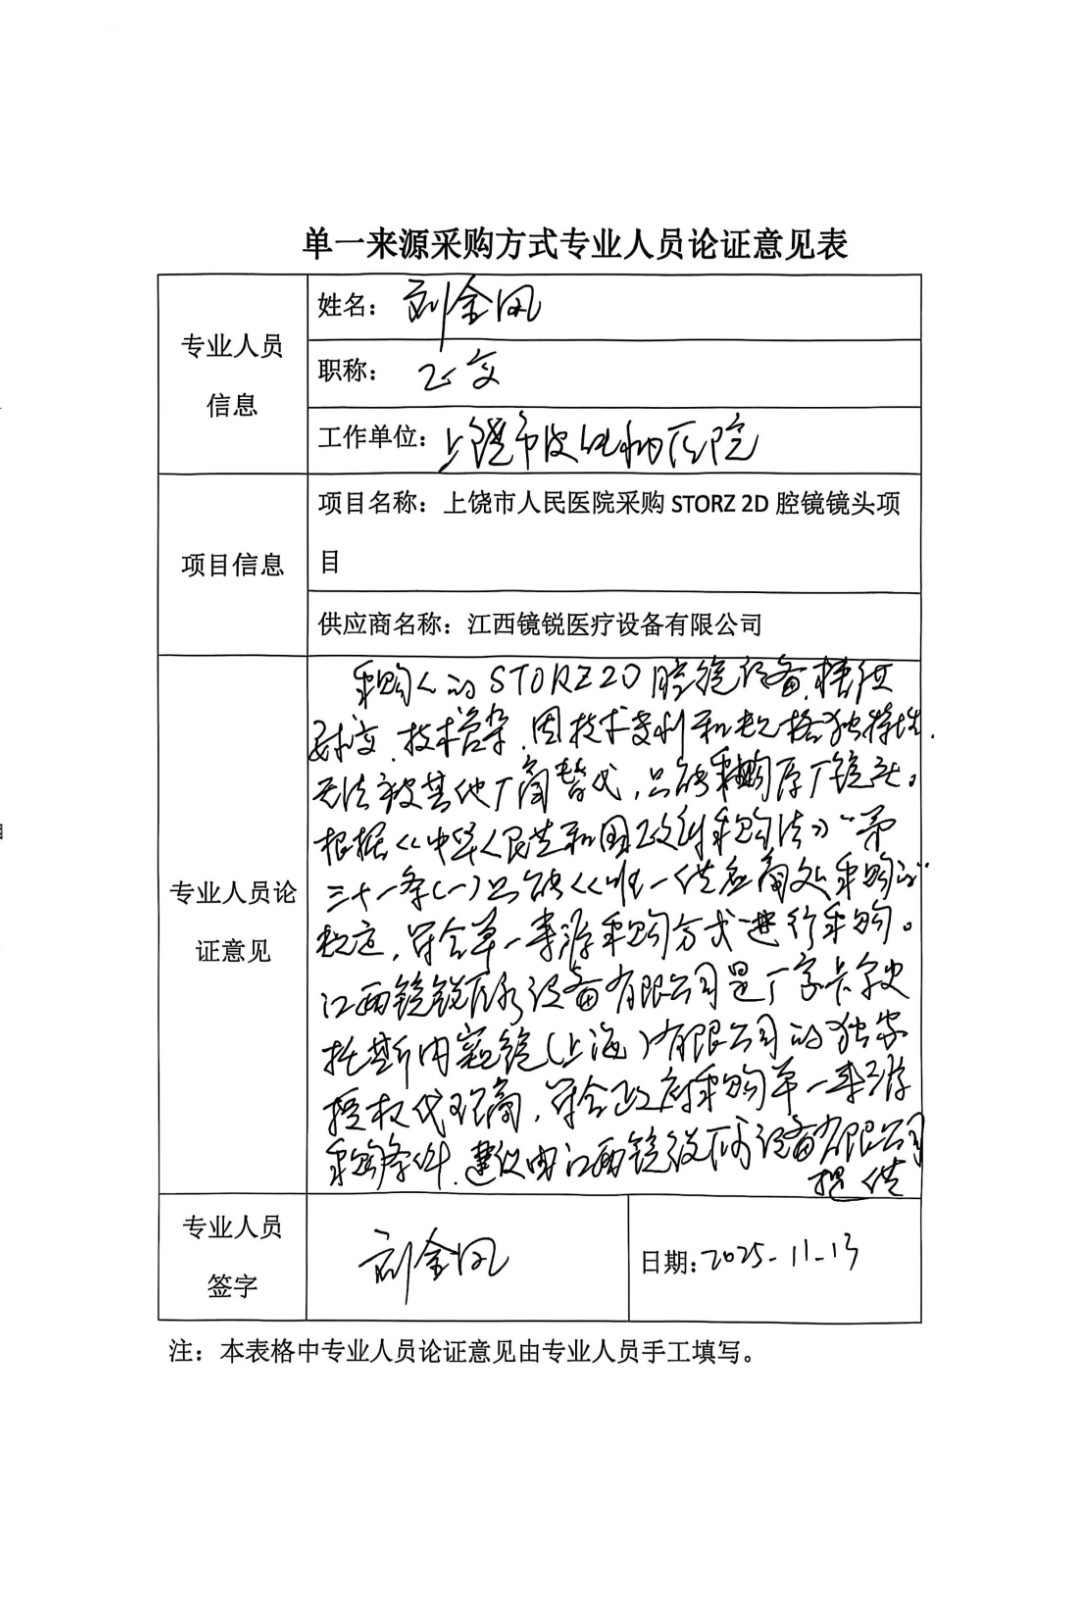 单一来源采购方式专业人员论证意见表
专业人员
信息
姓名：刘金凤
职称：正高
工作单位：上饶市皮肤病医院
项目信息
项目名称：上饶市人民医院采购 STORZ 2D 腔镜镜头项
目
供应商名称：江西镜锐医疗设备有限公司
专业人员论
证意见
采购人的STORZ2D腔镜设备,精度
技术复杂,因技术专利和规格独特性,
无法被其他厂商替代,只能采购原厂镜头。
根据《中华人民共和国政府采购法》“第
三十一条(一)只能从唯一供应商处采购的”
规定,符合单一来源采购方式进行采购。
江西镜锐医疗设备有限公司是厂家卡尔史
托斯内窥镜(上海)有限公司的独家
授权代理商,符合政府采购单一来源
采购条件.建议由江西镜锐医疗设备有限公司
提供
专业人员
签字
刘金凤
日期:2025-11-13
注：本表格中专业人员论证意见由专业人员手工填写。